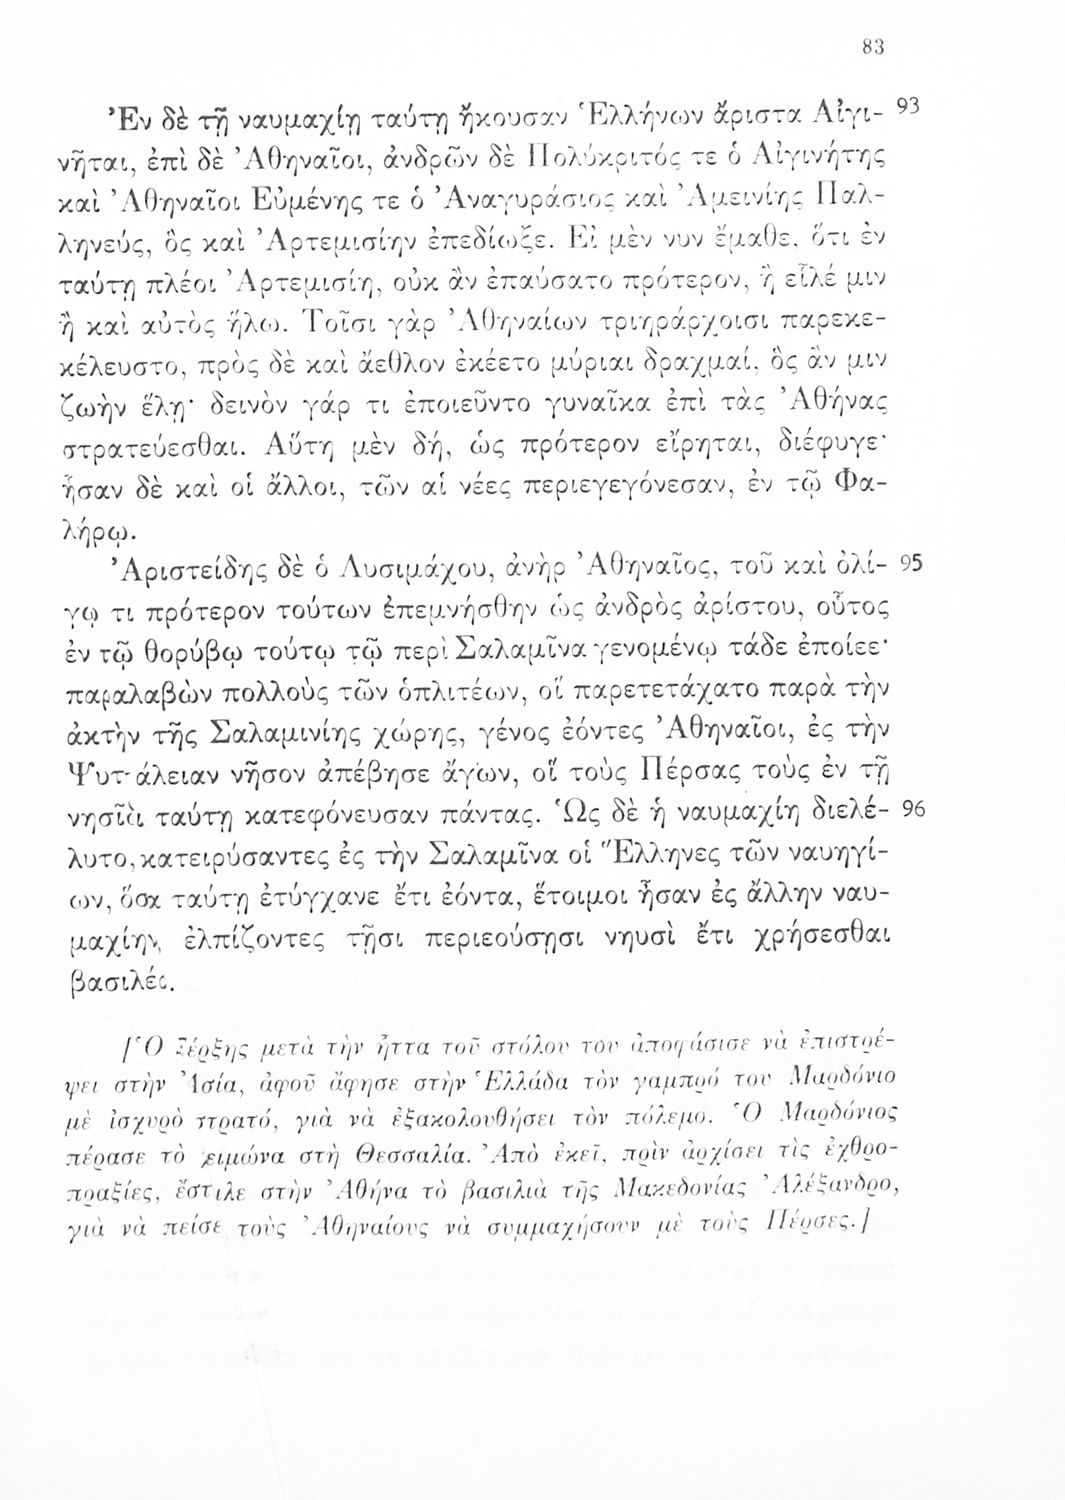 83
Ἐν δὲ τῇ ναυμαχίῃ ταύτῃ ἤκουσαν Ἑλλήνων ἄριστα Αἰγι- 93
νῆται, ἐπὶ δὲ Ἀθηναῖοι, ἀνδρῶν δὲ Πολύκριτός τε ὁ Αἰγινήτης
καὶ Ἀθηναῖοι Εὐμένης τε ὁ Ἀναγυράσιος καὶ Ἀμεινίης Παλ-
ληνεύς, ὃς καὶ Ἀρτεμισίην ἐπεδίωξε. Εἰ μέν νυν ἔμαθε, ὅτι ἐν
ταύτῃ πλέοι Ἀρτεμισίη, οὐκ ἂν ἐπαύσατο πρότερον, ἢ εἷλέ μιν
ἢ καὶ αὐτὸς ἥλω. Τοῖσι γὰρ Ἀθηναίων τριηράρχοισι παρεκε-
κέλευστο, πρὸς δὲ καὶ ἄεθλον ἐκέετο μύριαι δραχμαί, ὃς ἄν μιν
ζωὴν ἕλῃ· δεινὸν γάρ τι ἐποιεῦντο γυναῖκα ἐπὶ τὰς Ἀθήνας
στρατεύεσθαι. Αὕτη μὲν δή, ὡς πρότερον εἴρηται, διέφυγε·
ἦσαν δὲ καὶ οἱ ἄλλοι, τῶν αἱ νέες περιεγεγόνεσαν, ἐν τῷ Φα-
λήρῳ.
Ἀριστείδης δὲ ὁ Λυσιμάχου, ἀνὴρ Ἀθηναῖος, τοῦ καὶ ὀλί- 95
γῳ τι πρότερον τούτων ἐπεμνήσθην ὡς ἀνδρὸς ἀρίστου, οὗτος
ἐν τῷ θορύβῳ τούτῳ τῷ περὶ Σαλαμῖνα γενομένῳ τάδε ἐποίεε·
παραλαβὼν πολλοὺς τῶν ὁπλιτέων, οἳ παρετετάχατο παρὰ τὴν
ἀκτὴν τῆς Σαλαμινίης χώρης, γένος ἐόντες Ἀθηναῖοι, ἐς τὴν
Ψυττάλειαν νῆσον ἀπέβησε ἄγων, οἳ τοὺς Πέρσας τοὺς ἐν τῇ
νησῖδι ταύτῃ κατεφόνευσαν πάντας. Ὡς δὲ ἡ ναυμαχίη διελέ- 96
λυτο, κατειρύσαντες ἐς τὴν Σαλαμῖνα οἱ Ἕλληνες τῶν ναυηγί-
ων, ὅσα ταύτῃ ἐτύγχανε ἔτι ἐόντα, ἕτοιμοι ἦσαν ἐς ἄλλην ναυ-
μαχίην, ἐλπίζοντες τῇσι περιεούσῃσι νηυσὶ ἔτι χρήσεσθαι
βασιλέα.
[Ὁ Ξέρξης μετὰ τὴν ἧττα τοῦ στόλου του ἀποφάσισε νὰ ἐπιστρέ-
ψει στὴν Ἀσία, ἀφοῦ ἄφησε στὴν Ἑλλάδα τὸν γαμπρό του Μαρδόνιο
μὲ ἰσχυρὸ στρατό, γιὰ νὰ ἐξακολουθήσει τὸν πόλεμο. Ὁ Μαρδόνιος
πέρασε τὸ χειμώνα στὴ Θεσσαλία. Ἀπὸ ἐκεῖ, πρὶν ἀρχίσει τὶς ἐχθρο-
πραξίες, ἔστιλε στὴν Ἀθήνα τὸ βασιλιὰ τῆς Μακεδονίας Ἀλέξανδρο,
γιὰ νὰ πείσε τοὺς Ἀθηναίους νὰ συμμαχήσουν μὲ τοὺς Πέρσες.]